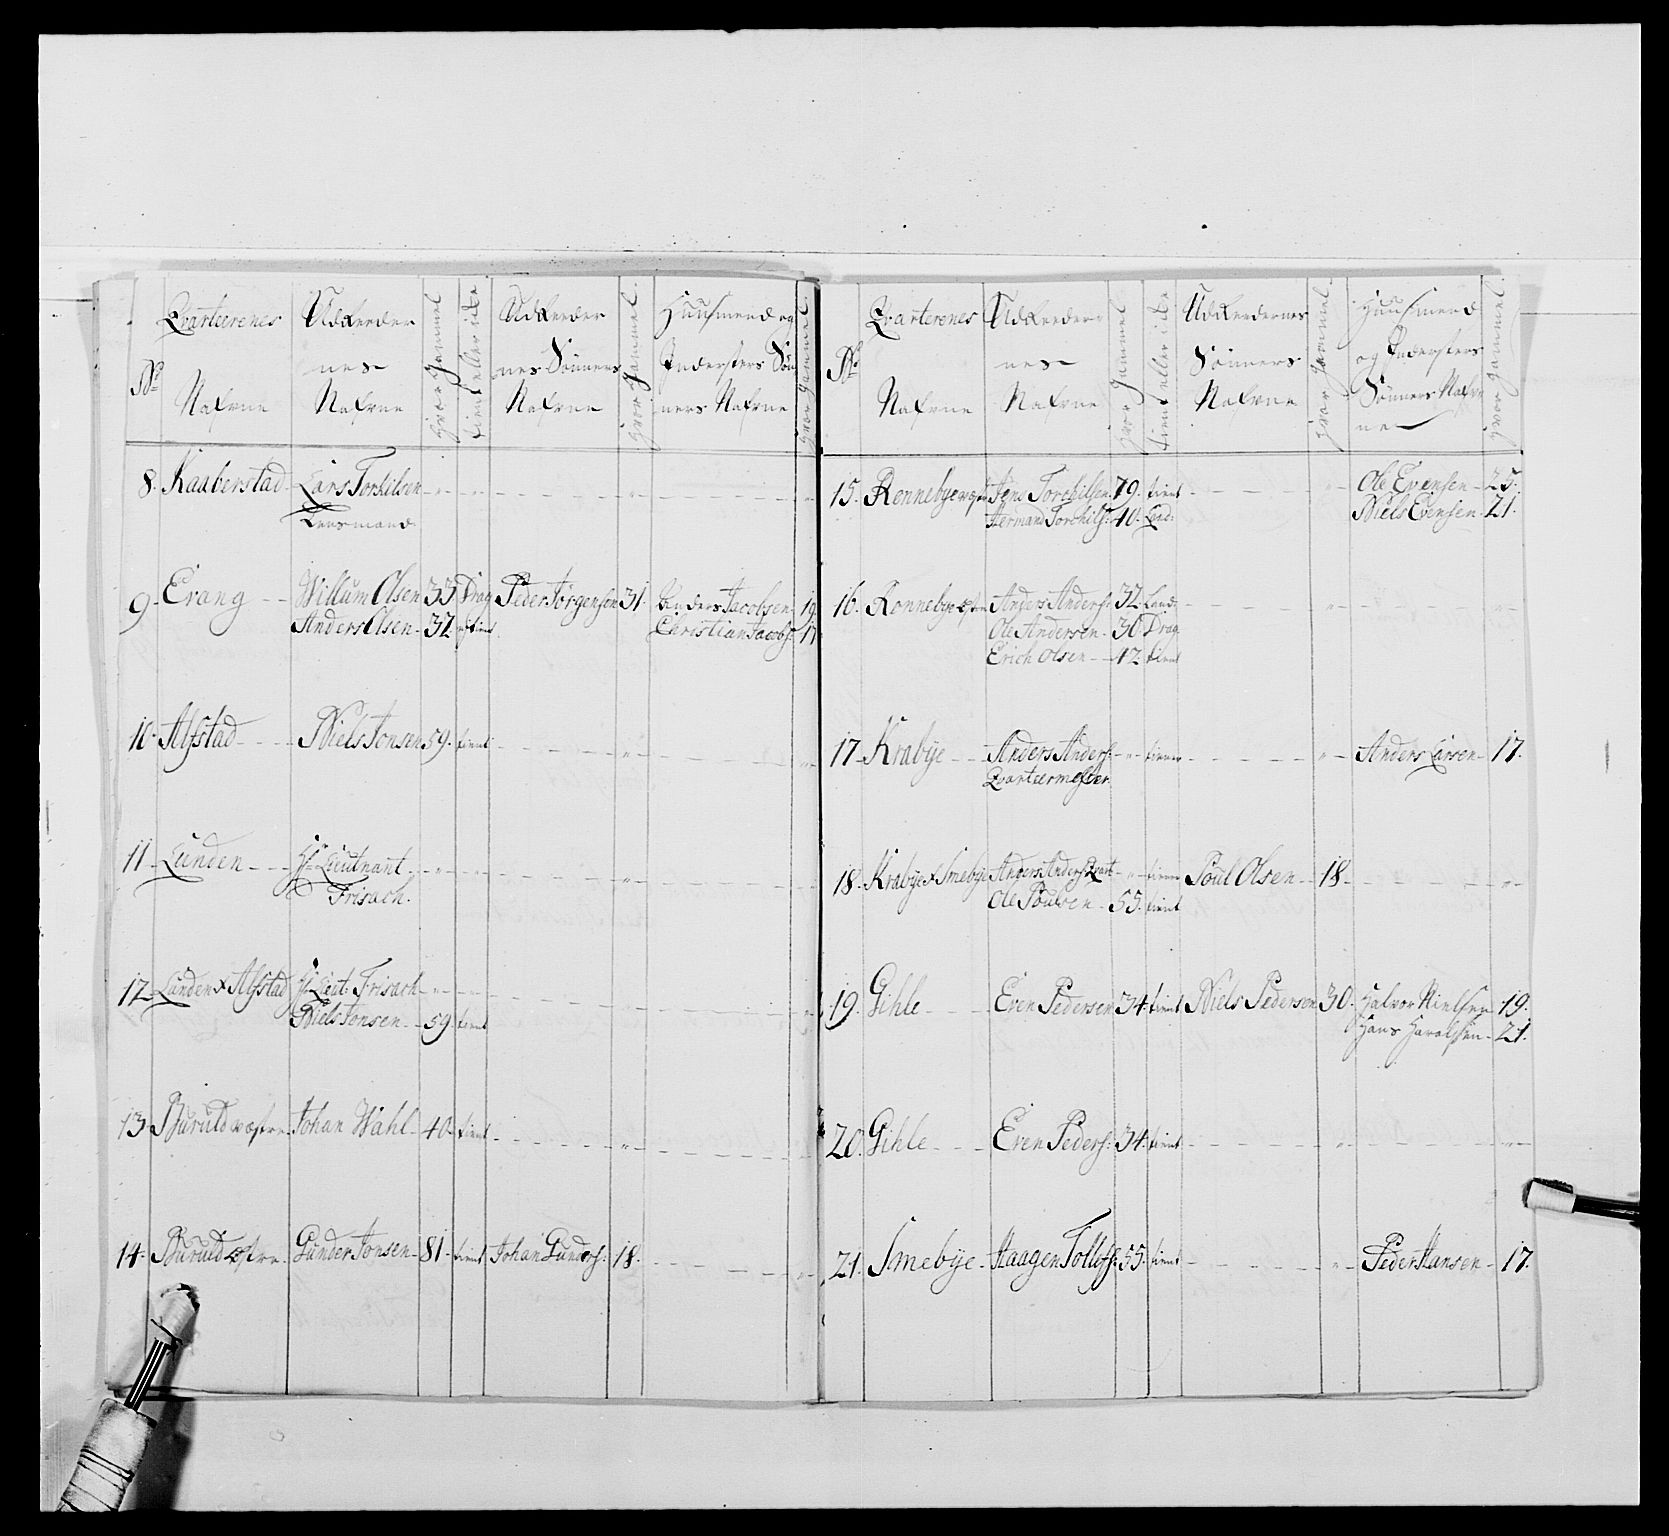 No
Qvarteerenes
Nafvne
Udreeder
nes
Nafvne
hvor Gammel
tient eller icke
Udreeder
nes Sønners
Nafvne
hvor Gammel.
Huusmend og
Indersters Søn
ners Nafvne
hvor Gammel
8. Kaaberstad Lars Torkilsen
Lensmand
9. Erang Willum Olsen 33 Drag Peder Jørgensen 31. Anders Jacobsen 19
Anders Olsen 32 tient Christian Jacobs: 17
10. Alfstad Niels Jonsen 59. tient
11 Lunden Hr Lieutnant
Frisach.
12 Lunden & Alfstad Hr Lieut: Frisach
Niels Jonsen 59. tient
13. Buruld vestre Johan Wahl 40. tient
14. Buruld østre Gunder Jonsen 81. tient Johan Gunders: 18.
No
Qvarterenes
Nafvne
Udreeder
nes
Nafvne
hvor Gammel
tient eller icke
Udreedernes
Sønners
Nafvne
hvor Gammel.
Huusmend
og Indersters
Sønners Nafv
ne
hvor Gammel.
15. Ronnebye vestre Jens Torchilsen 79. tient Ole Evensen 25.
Herman Torchils: 40. Land: Niels Evensen 21.
16. Ronnebye østre Anders Anders: 32 Land
Ole Andersen 30 Drag
Erich Olsen 42 tient
17 Krabye Anders Anders: tiener Anders Larsen 17.
Qvarteermester
18. Krabye & Smebye Anders Anders: Qvart tiener Poul Olsen 18
Ole Poulsen 55. tient
19. Gihle Even Pedersen 34. tient Niels Pedersen 30. Halvor Nielsen 19.
Hans Haralsen 21.
20. Gihle Even Peders: 34. tient
21. Smebye Haagen Tollefs: 55. tient Peder Hansen 17.